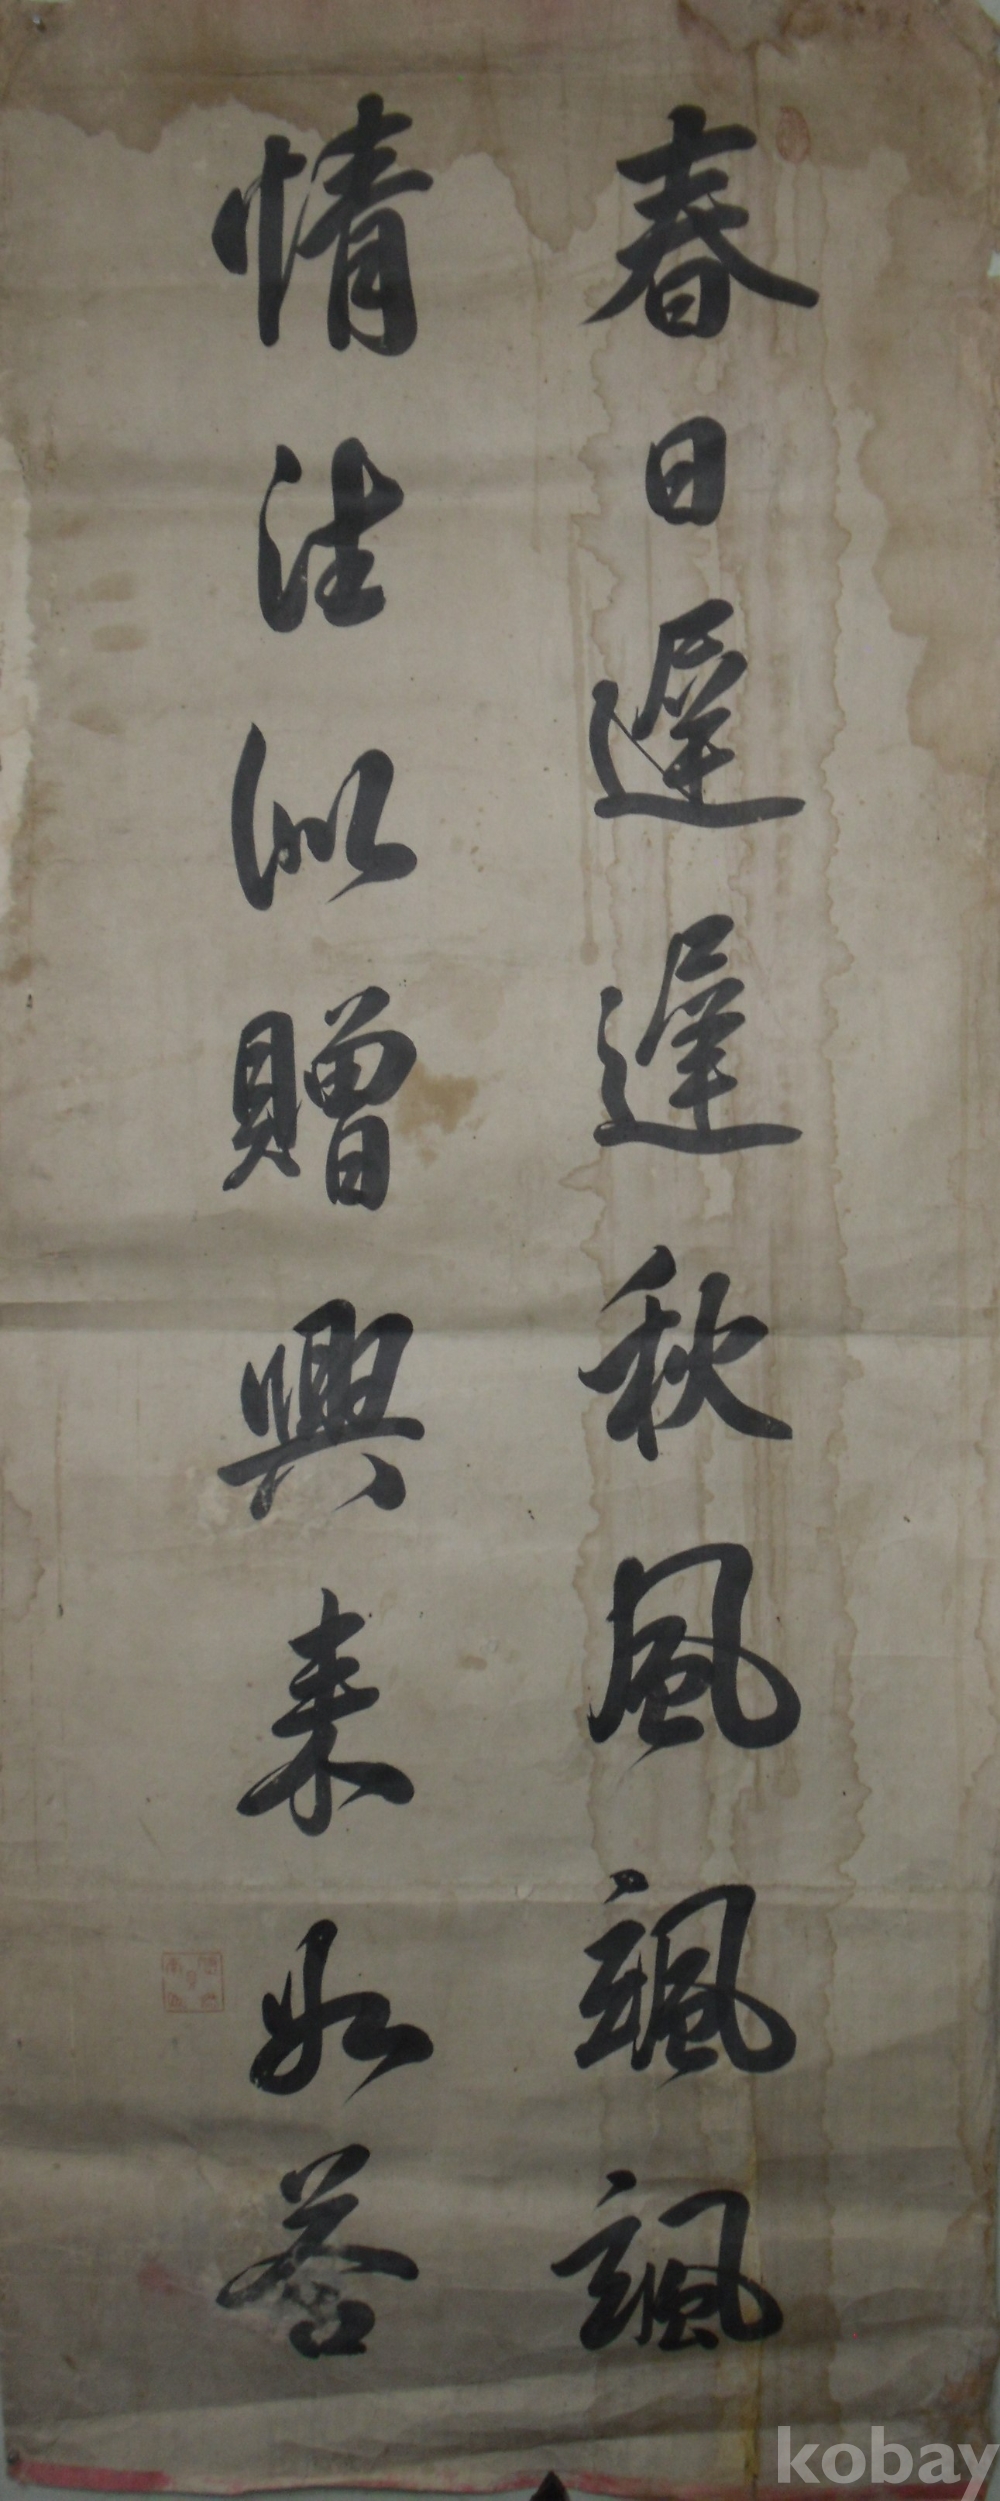 春日遲遲秋風颯颯
情往似贈興來如答
kobay